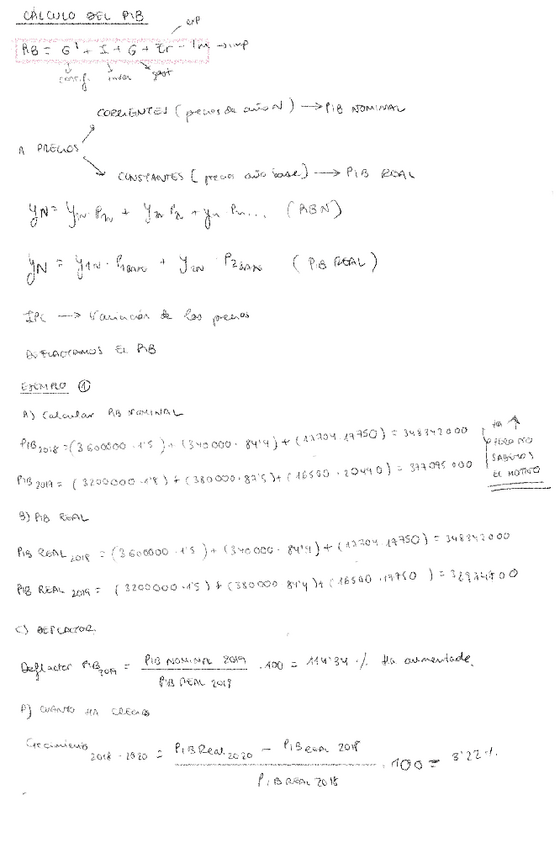 CÁLCULO DEL PIB
exp
PIB = G' + I + G + Ex - Im → imp
inver gast
CORRIENTES (precios de año N) → PIB NOMINAL
A PRECIOS
CONSTANTES (precios año base) → PIB REAL
(PIB REAL)
IPC → Variación de los precios
DEFLACTAMOS EL PIB
EJEMPLO ①
A) Calcular PIB NOMINAL
PIB 2018 = (3600000 · 1'5) + (340000 · 84'4) + (17704 · 17750) = 348342000
PIB 2019 = (3200000 · 1'8) + (380000 · 87'5) + (16500 · 20440) = 377095000
ha ↑
PERO NO
SABEMOS
EL MOTIVO
B) PIB REAL
PIB REAL 2018 = (3600000 · 1'5) + (340000 · 84'4) + (17704 · 17750) = 348342000
PIB REAL 2019 = (3200000 · 1'5) + (380000 · 81'4) + (16500 · 17750) =
C) DEFLACTOR
Deflactor PIB 2019 = PIB NOMINAL 2019 / PIB REAL 2018 · 100 = 114'34 % Ha aumentado.
D) CUANTO HA CRECIDO
Crecimiento 2018-2020 = PIB Real 2020 - PIB Real 2018 / PIB REAL 2018 · 100 = 3'22 %